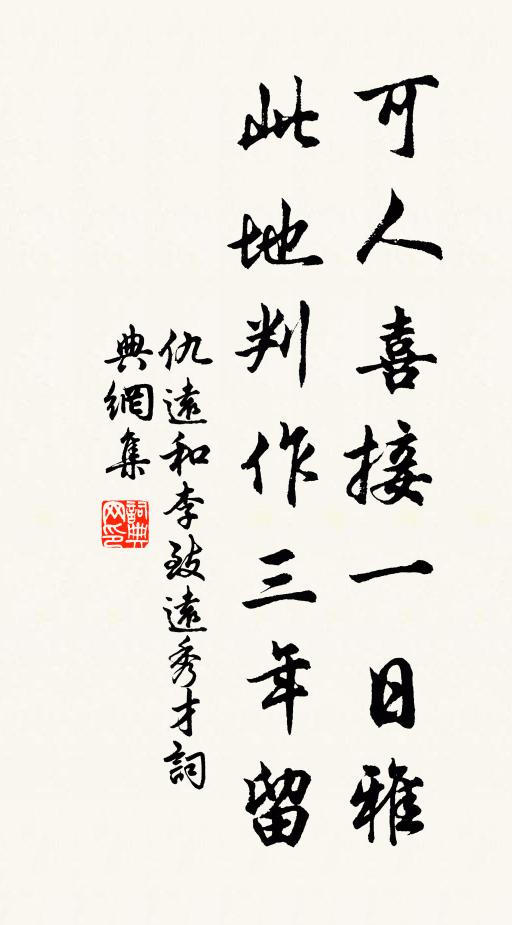 可人喜接一日雅
此地判作三年留
仇遠和李致遠秀才詞
典網集
詞典
网印